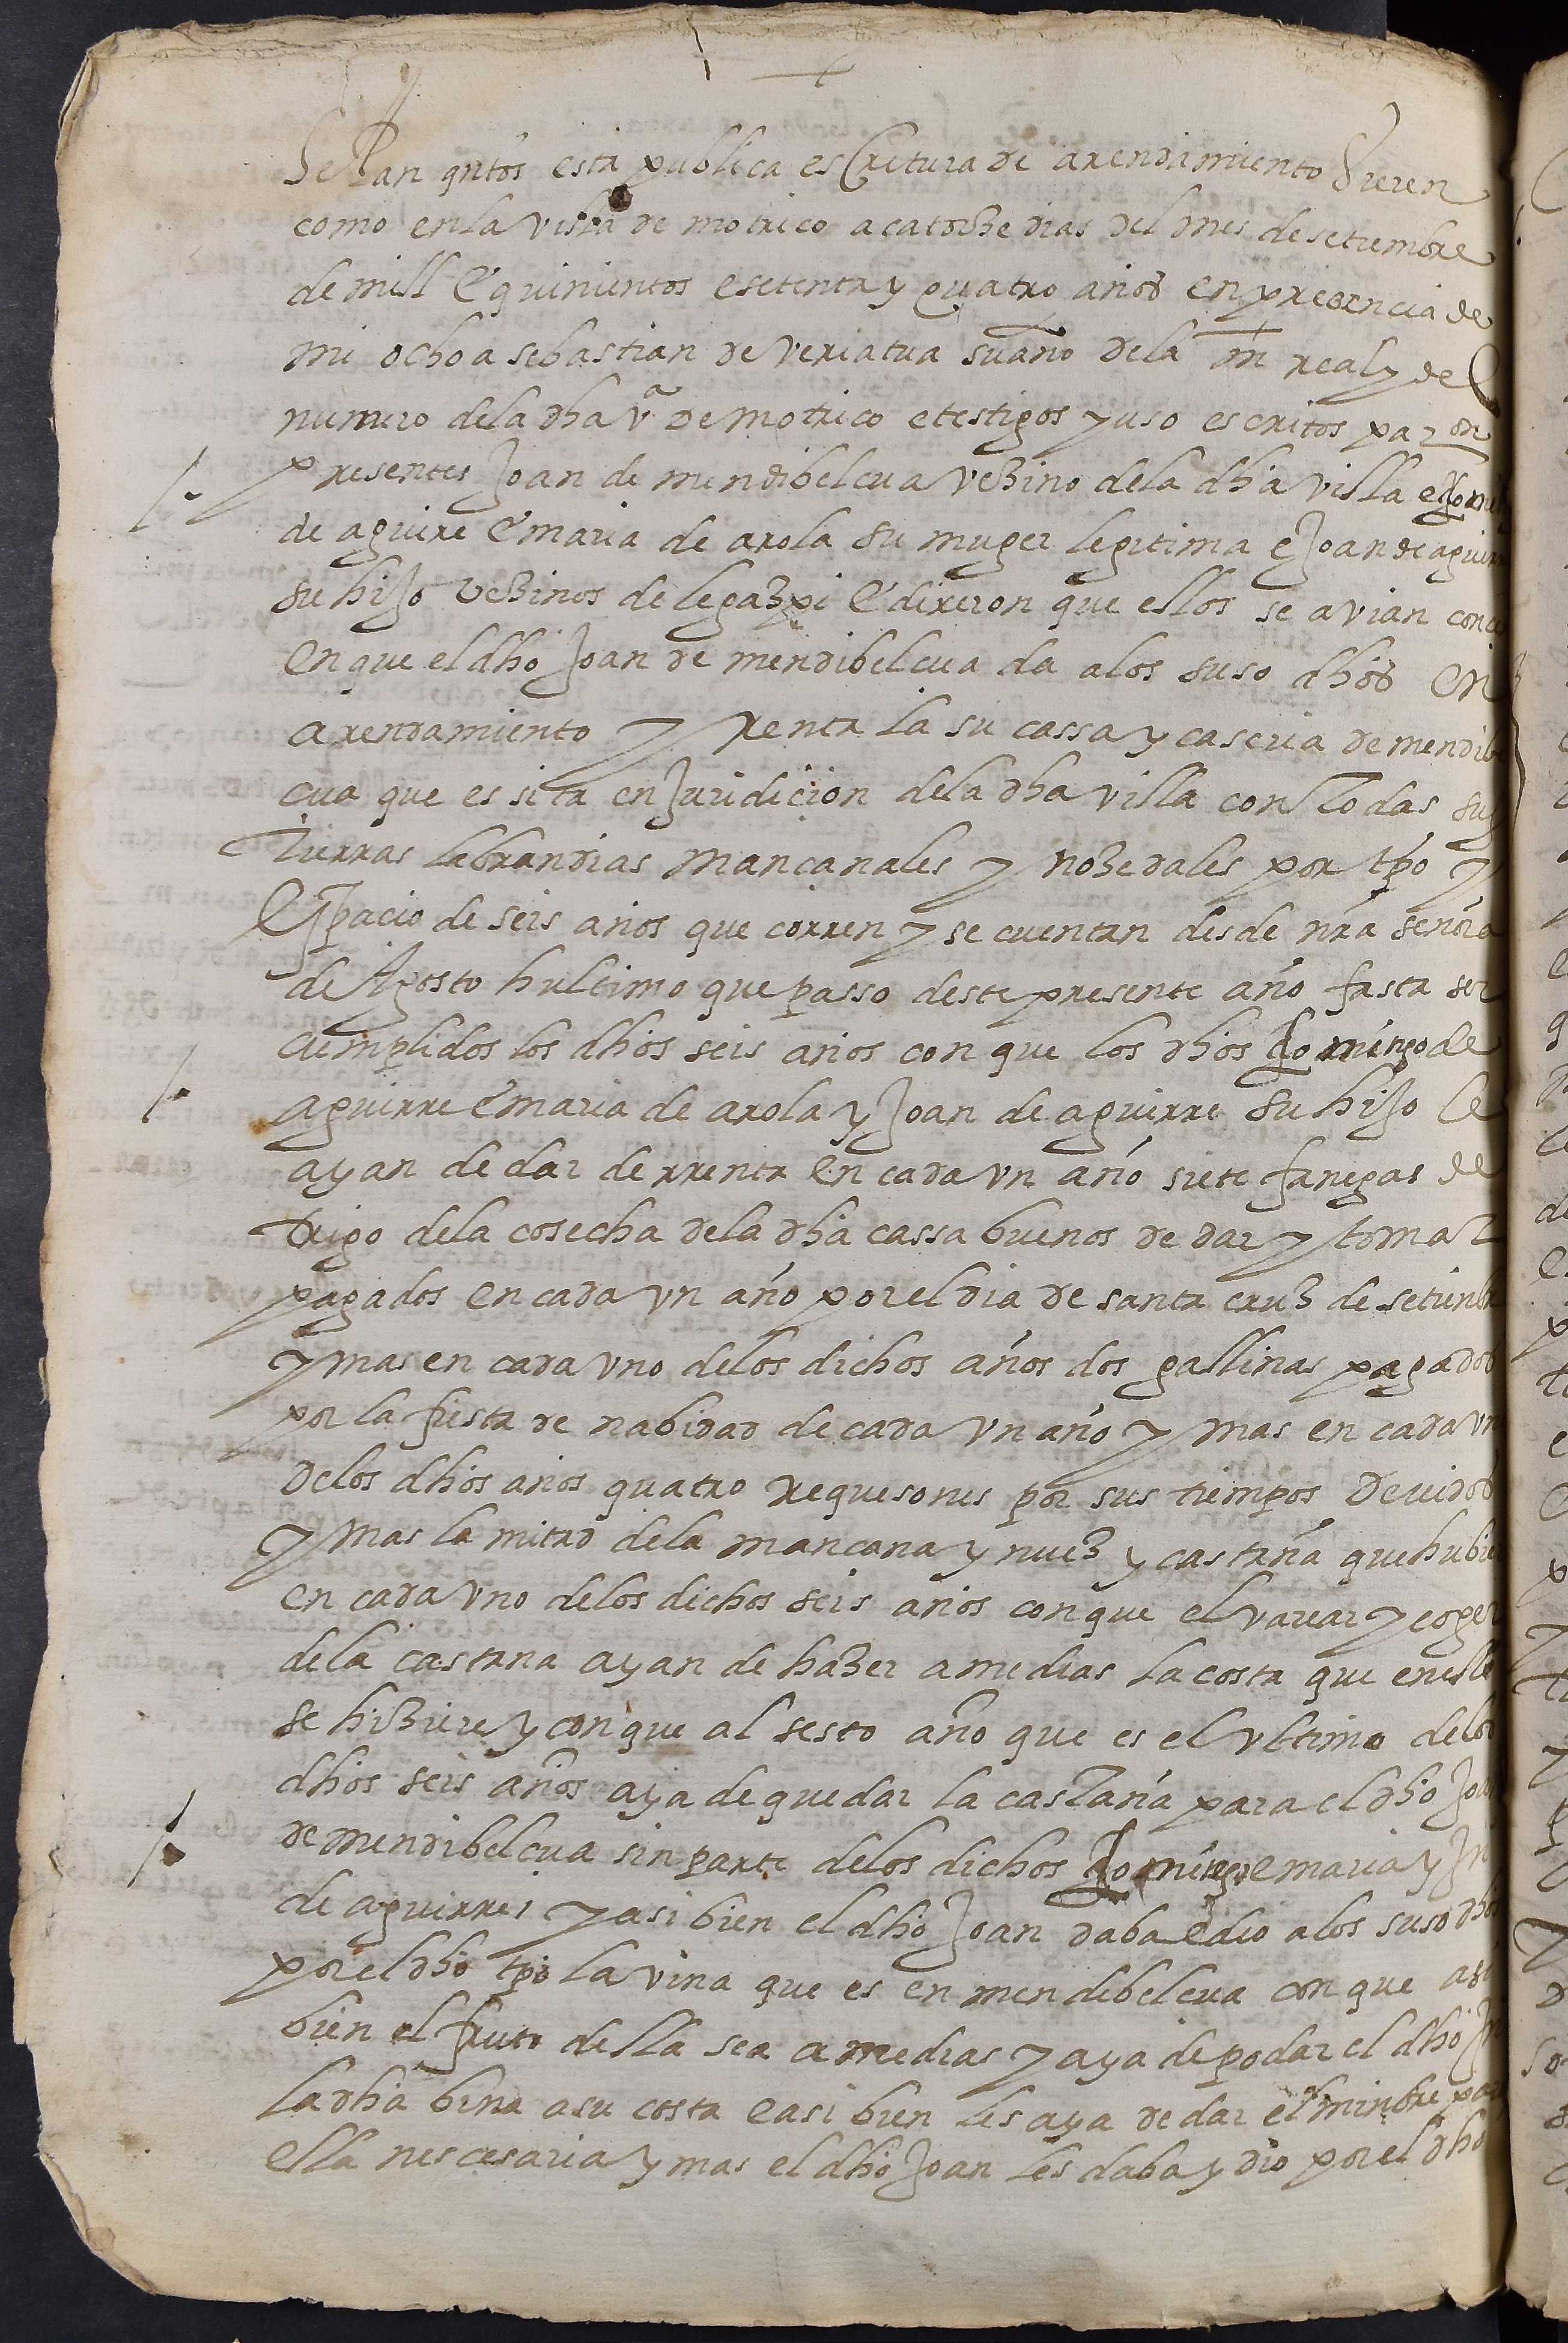 +
Sepan qntos esta publica escritura de arendimiento Vieren
como en la villa de motrico a catorze dias del mes de setiembre
de mill e quinientos e setenta y quatro años en presencia de
mi ochoa sebastian de veriatua scriuano de la m real y del
numero de la dha va de motrico e testigos yuso escritos
presentes Joan de mendibelcua vezino de la dha villa e
de aguire e maria de arola su muger legitima e Joan de aguirre
su hiJo vezinos de legazpi e dixeron que ellos se avian
en que el dho Joan de mendibelcua da a los suso dhos en
arendamiento y renta la su cassa y caseria de mendibel
cua que es sita en Juridicion de la dha villa con todas sus
tierras labrandias mançanales y nozedales por tpo y
espacio de seis años que corren y se cuentan desde nra señora
de Agosto hultimo que passo deste presente año fasta ser
cumplidos los dhos seis años con que los dhos domingo de
aguirre e maria de arola y Joan de aguirre su hiJo le
ayan de dar de rrenta en cada vn año siete fanegas de
trigo de la cosecha de la dha cassa buenos de dar y tomar
pagados en cada vn año por el dia de santa cruz de setienbre
y mas en cada vno de los dichos años dos gallinas pagados
por la fiesta de nabidad de cada vn año y mas en cada vn
de los dhos años quatro requesones por sus tiempos devidos
y mas la mitad de la mancana y nuez y castaña que hubiere
en cada vno de los dichos seis años con que el varear y coger
de la castana ayan de hazer a medias la costa que en ello
se hiziere y con que al sesto año que es el vltimo de los
dhos seis años aya de quedar la castaña para el dho Joan
de mendibelcua sin parte de los dichos domingo e maria y Jn
de aguirres y asi bien el dho Joan daba e dio a los suso dhos
por el dho tpo la vina que es en mendibelcua con que asi
bien el fruto della sea a medias y aya de podar el dho Jn
la dha bina a su costa e asi bien les aya de dar el minbre para
ella nescesaria y mas el dho Joan les daba y dio por el dho